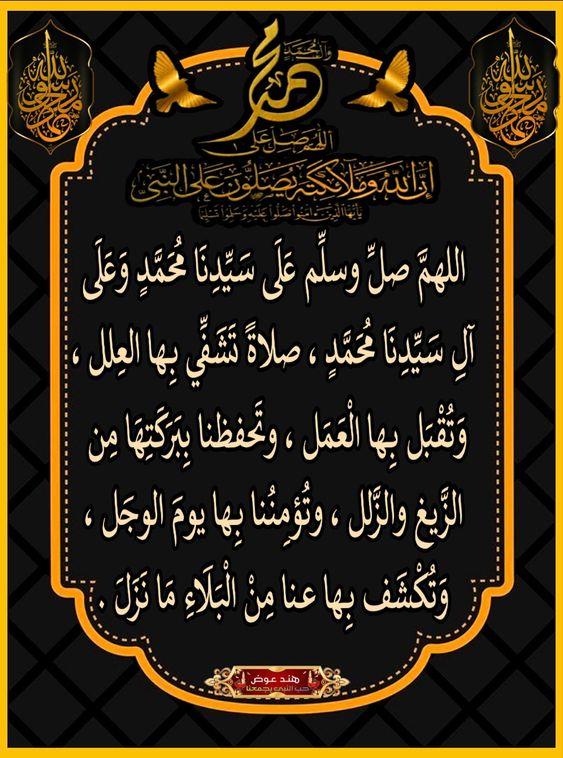 محمد
اللهم صل على
إن الله وملائكته يصلون على النبي
يا أيها الذين آمنوا صلوا عليه وسلموا تسليما
اللهمَّ صلِّ وسلِّم عَلَى سَيِّدِنَا مُحَمَّدٍ وَعَلَى
آلِ سَيِّدِنَا مُحَمَّدٍ ، صلاةً تَشَفِّي بِها العِلل ،
وَتُقْبَل بِها الْعَمَل ، وتَحفظنا بِبَرَكَتِهَا مِن
الزَّيغ والزَّلل ، وتُؤمِنُنا بِها يومَ الوجَل ،
وَتُكْشَف بِها عنا مِنْ الْبَلَاءِ مَا نَزَلَ .
هند عوض
حب النبي يجمعنا